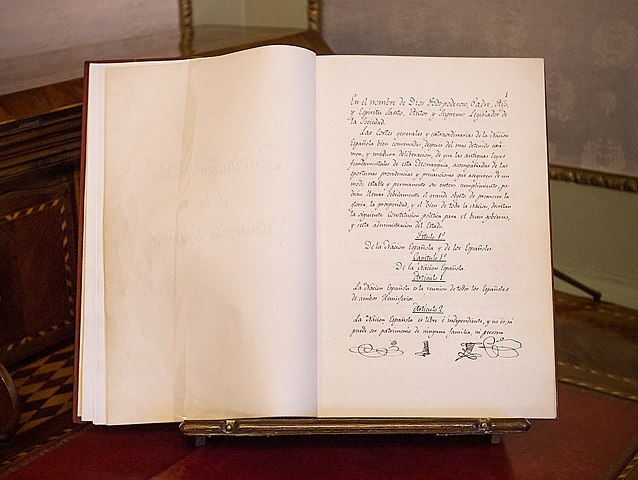 1
En el nombre de Dios Todopoderoso, Padre, Hijo,
y Espiritu Santo, Autor y Supremo Legislador de
la Sociedad.
Las Cortes generales y extraordinarias de la Nacion
Española, bien convencidas, despues del mas detenido exa-
men, y madura deliberacion, de que las antiguas leyes
fundamentales de esta Monarquia, acompañadas de las
oportunas providencias y precauciones, que aseguren de un
modo estable y permanente su entero cumplimiento, po-
dran llenar debidamente el grande objeto de promover la
gloria, la prosperidad, y el bien de toda la Nacion, decretan
la siguiente Constitucion politica para el buen gobierno,
y recta administracion del Estado.
Titulo 1º
De la Nacion Española y de los Españoles.
Capitulo 1º
De la Nacion Española.
Articulo 1.
La Nacion Española es la reunion de todos los Españoles
de ambos hemisferios.
Articulo 2.
La Nacion Española es libre é independiente, y no es, ni
puede ser patrimonio de ninguna familia, ni persona.